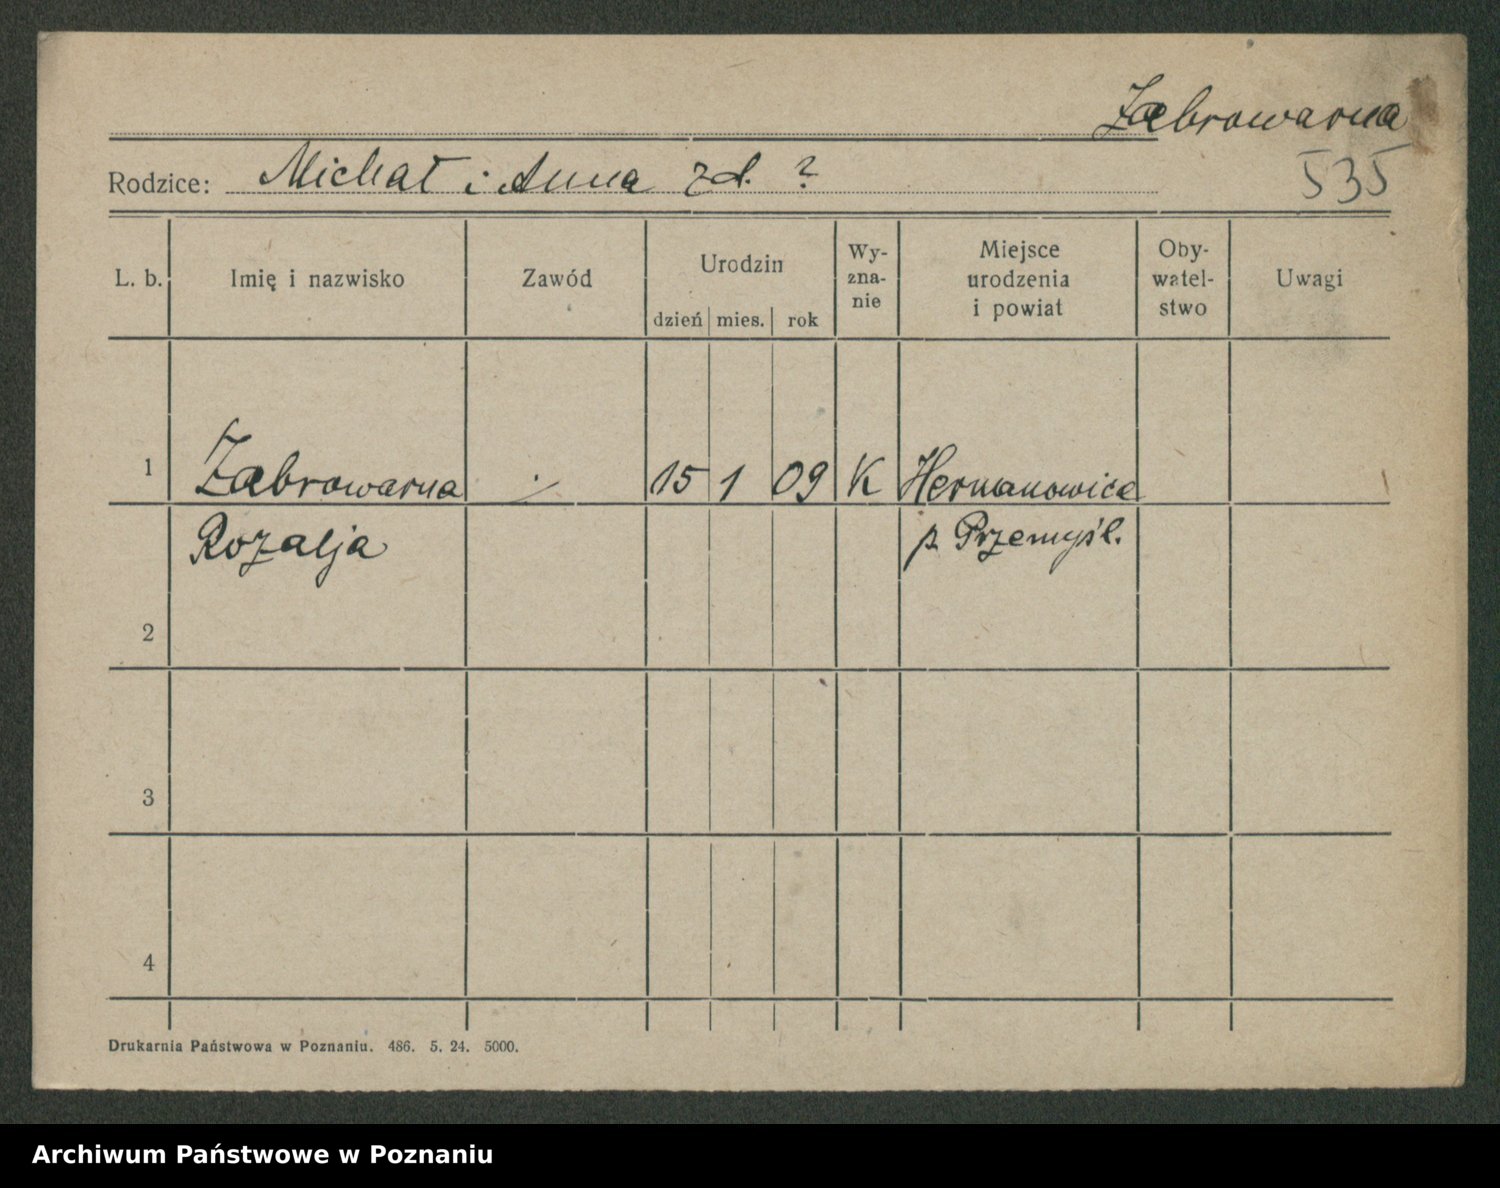 Zabrowarna
Rodzice: Michał i Anna zd. ?
535
L. b. Imię i nazwisko Zawód Urodzin dzień mies. rok Wy-zna-nie Miejsce urodzenia i powiat Oby-watel-stwo Uwagi
1 Zabrowarna ./. 15 1 09 K Hermanowice
Rozalja p. Przemyśl.
2
3
4
Drukarnia Państwowa w Poznaniu. 486. 5. 24. 5000.
Archiwum Państwowe w Poznaniu